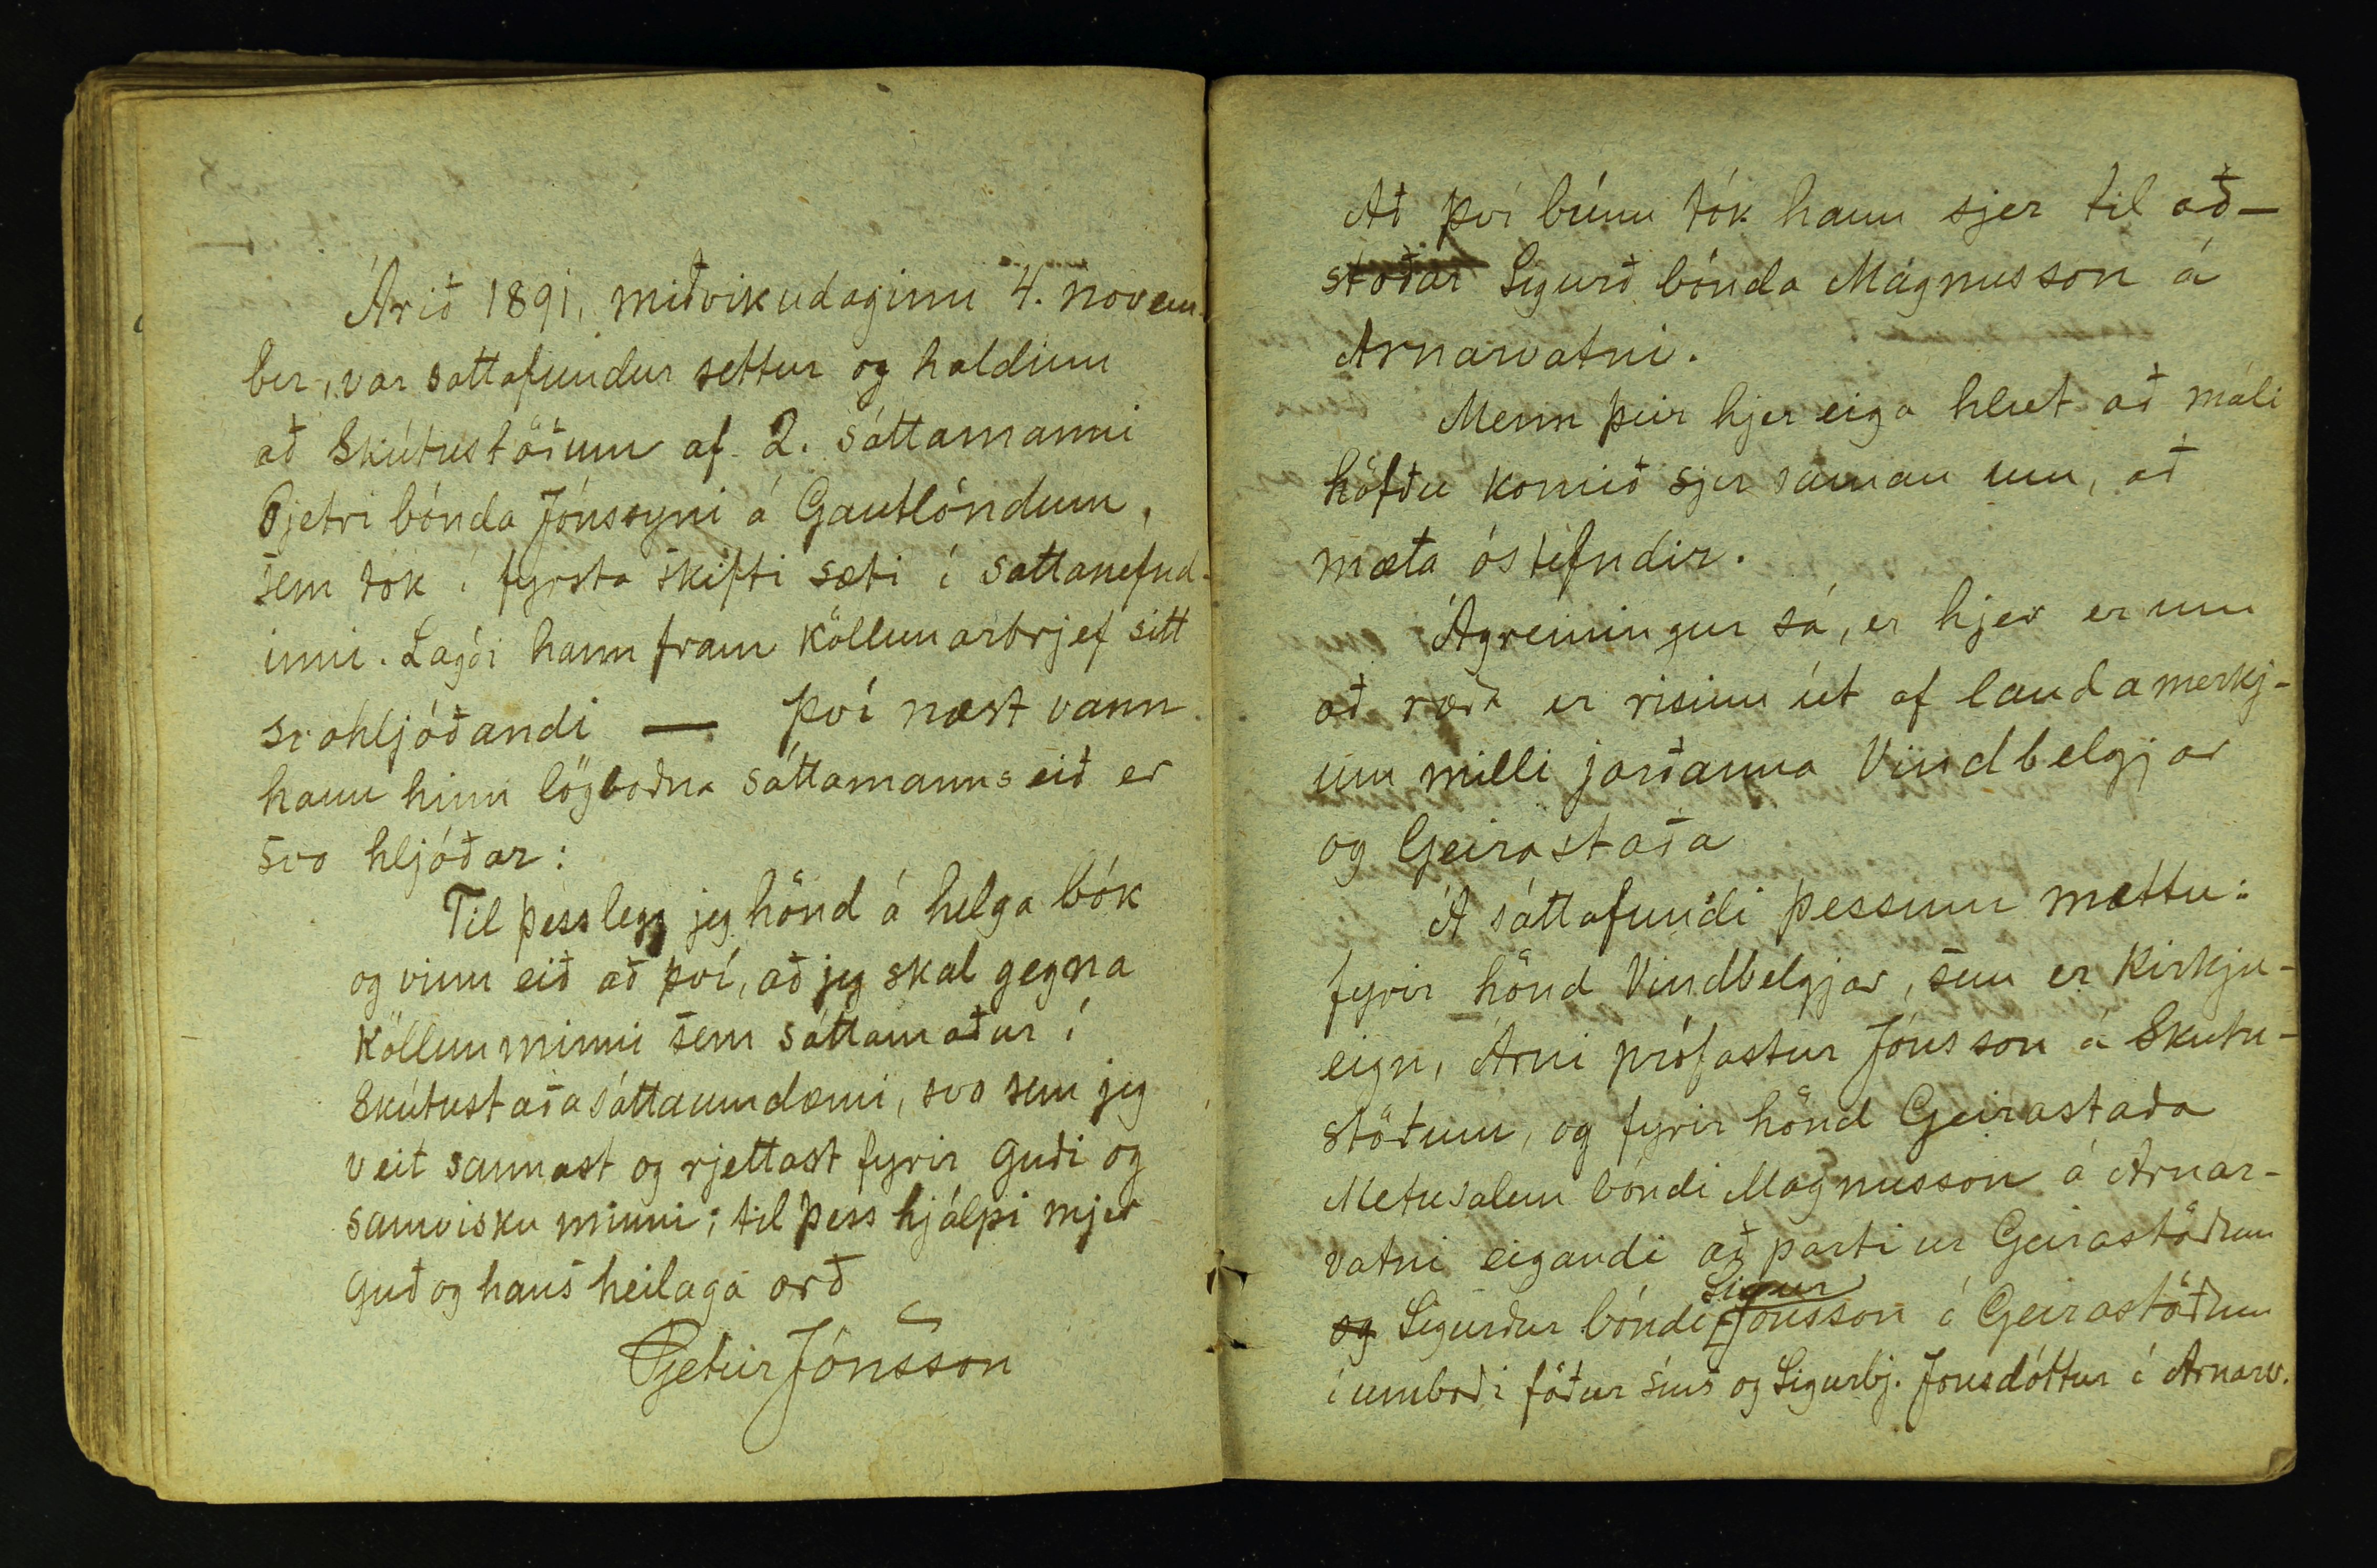 Árið 1891, miðvikudaginn 4. novem-
ber, var sáttafundur settur og haldinn
að Skútustöðum af 2. sáttamanni
Pjetri bónda Jónssyni á Gautlöndum,
sem tók í fyrsta skifti sæti í sáttanefnd-
inni. Lagði hann fram köllunarbrjef sitt
svohljóðandi — því næst vann
hann hinn lögboðna sáttamannseið er
svo hljóðar:
Til þess legg jeg hönd á helga bók
og vinn eið að því, að jeg skal gegna
köllun minni sem sáttamaður í
Skútustaðasáttaumdæmi, svo sem jeg
veit sannast og rjettast fyrir guði og
samvisku minni; til þess hjálpi mjer
guð og hans heilaga orð
Pjetur Jónsson
Að því búnu tók hann sjer til að-
stoðar Sigurð bónda Magnusson á
Arnarvatni.
Menn þeir hjer eiga hlut að máli
höfðu komið sjer saman um, að
mæta óstefndir.
Ágreiningur sá, er hjer er um
að ræða er risinn út af landamerkj-
um milli jarðanna Vindbelgjar
og Geirastaða
Á sáttafundi þessum mættu:
fyrir hönd Vindbelgjar, sem er kirkju-
eign, Árni prófastur Jónsson á Skutu-
stöðum, og fyrir hönd Geirastaða
Metusalem bóndi Magnusson á Arnar-
vatni eigandi að parti ur Geirastöðum
Sigur
og Sigurður bóndi Jónsson á Geirastöðum
í umboði föður síns og Sigurbj. Jónsdóttur á Arnarv.